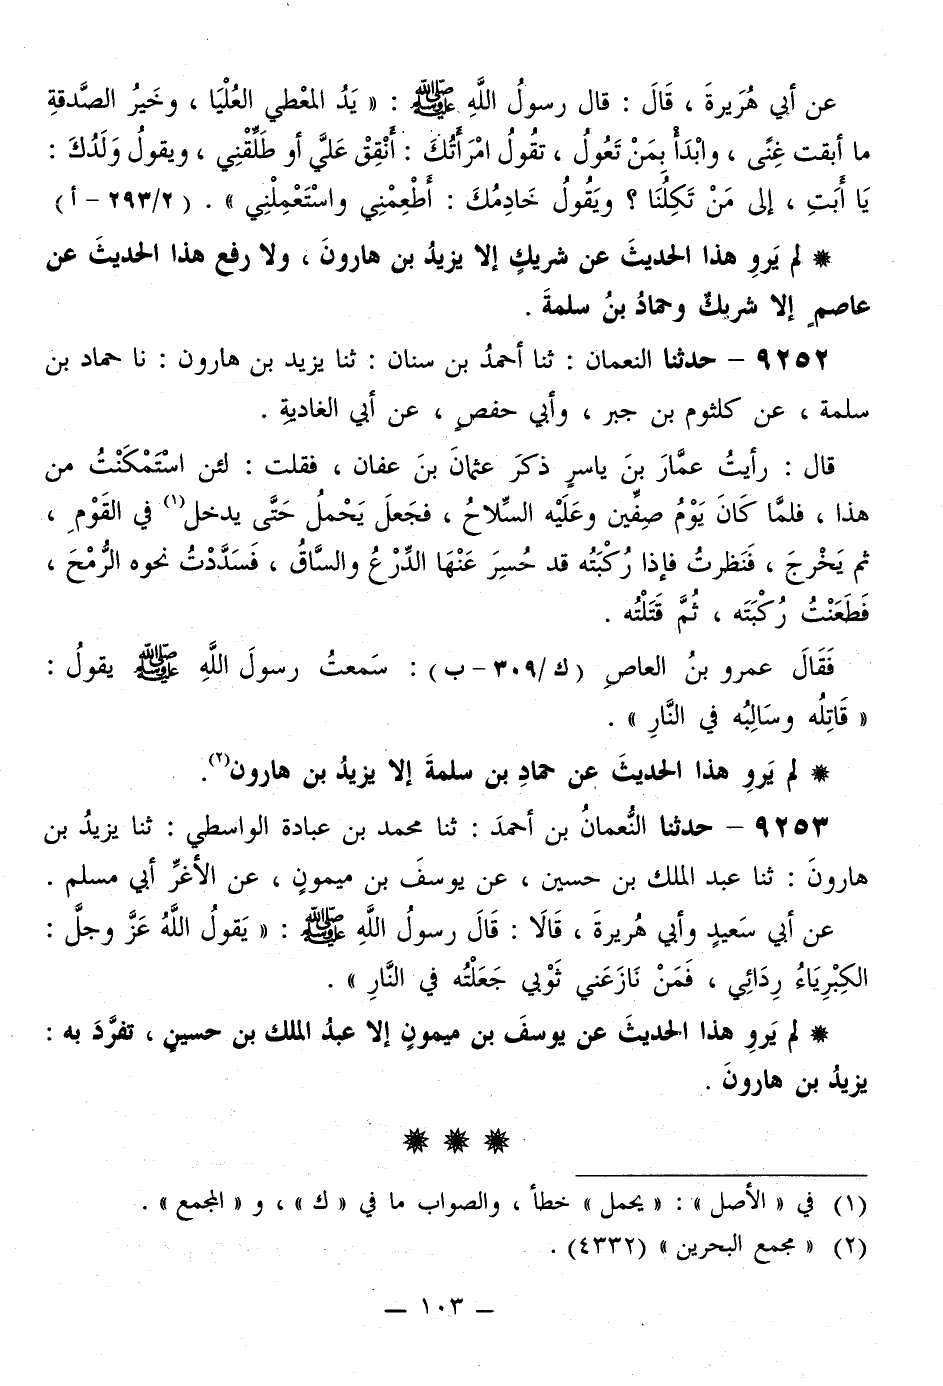 عن أبي هُرَيرةَ ، قَالَ : قال رسولُ اللَّهِ ﷺ : « يَدُ المعْطي العُلْيَا ، وخَيرُ الصَّدقةِ
ما أبقت غِنًى ، وابْدَأْ بِمَنْ تَعُولُ ، تقُولُ امْرَأَتُكَ : أَنْفِقْ عَليَّ أو طَلِّقْنِي ، ويقولُ وَلَدُكَ :
يَا أَبَتِ ، إلى مَنْ تَكِلُنَا ؟ ويَقُولُ خَادِمُكَ : أَطْعِمْنِي واسْتَعْمِلْنِي » . ( ٢/٢٩٣ - أ )
* لم يَروِ هذا الحديثَ عن شريكٍ إلا يزيدُ بن هارونَ ، ولا رفع هذا الحديثَ عن
عاصمٍ إلا شريكٌ وحمادُ بنُ سلمةَ .
٩٢٥٢ - حدثنا النعمان : ثنا أحمدُ بن سنان : ثنا يزيد بن هارون : نا حماد بن
سلمة ، عن كلثوم بن جبر ، وأبي حفصٍ ، عن أبي الغاديةِ .
قال : رأيتُ عمَّارَ بنَ ياسرٍ ذكرَ عثمانَ بنَ عفان ، فقلت : لئن اسْتَمْكَنْتُ من
هذا ، فلمَّا كَانَ يَوْمُ صِفِّين وعَلَيْه السِّلاحُ ، فجَعلَ يَحْملُ حَتَّى يدخل(١) في القَوْمِ ،
ثم يَخْرجَ ، فَنَظرتُ فإذا رُكْبَتُه قد حُسِرَ عَنْهَا الدِّرْعُ والسَّاقُ ، فَسَدَّدْتُ نحوه الرُّمْحَ ،
فَطَعَنْتُ رُكْبَتَه ، ثُمَّ قَتَلْتُه .
فَقَالَ عمرو بنُ العاصِ ( ك/٣٠٩ - ب ) : سَمعتُ رسولَ اللَّهِ ﷺ يقولُ :
« قَاتِلُه وسَالِبُه في النَّارِ » .
* لم يَروِ هذا الحديثَ عن حمادِ بن سلمةَ إلا يزيدُ بن هارون(٢).
٩٢٥٣ - حدثنا النُّعمانُ بن أحمدَ : ثنا محمد بن عبادة الواسطي : ثنا يزيدُ بن
هارونَ : ثنا عبد الملك بن حسين ، عن يوسفَ بن ميمونٍ ، عن الأغرِّ أبي مسلم .
عن أبي سَعيدٍ وأبي هُريرةَ ، قَالَا : قَالَ رسولُ اللَّهِ ﷺ : « يَقولُ اللَّهُ عَزَّ وجلَّ :
الكِبْرِيَاءُ رِدَائِي ، فَمَنْ نَازَعَني ثَوْبي جَعَلْتُه في النَّارِ » .
* لم يَروِ هذا الحديثَ عن يوسفَ بن ميمونٍ إلا عبدُ الملك بن حسينٍ ، تفرَّدَ به :
يزيدُ بن هارونَ .
* * *
(١) في « الأصل » : « يحمل » خطأ ، والصواب ما في « ك » ، و « المجمع » .
(٢) « مجمع البحرين » (٤٣٣٢) .
— ١٠٣ —